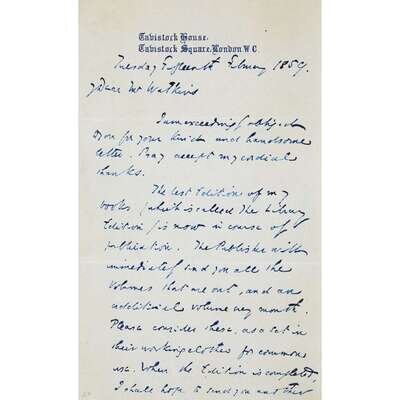 Tavistock House,
Tavistock Square, London. W.C.
Tuesday Fifteenth February 1859.
My Dear Mr Watkins
I am exceedingly obliged
to you for your kind and handsome
letter. Pray accept my cordial
thanks.
The best Edition of my
books (which is called The Library
Edition) is now in course of
publication. The Publisher will
immediately send you all the
volumes that are out, and an
additional volume every month.
Please consider these, as a set in
their working clothes for common
use. When the Edition is completed,
I shall hope to send you another